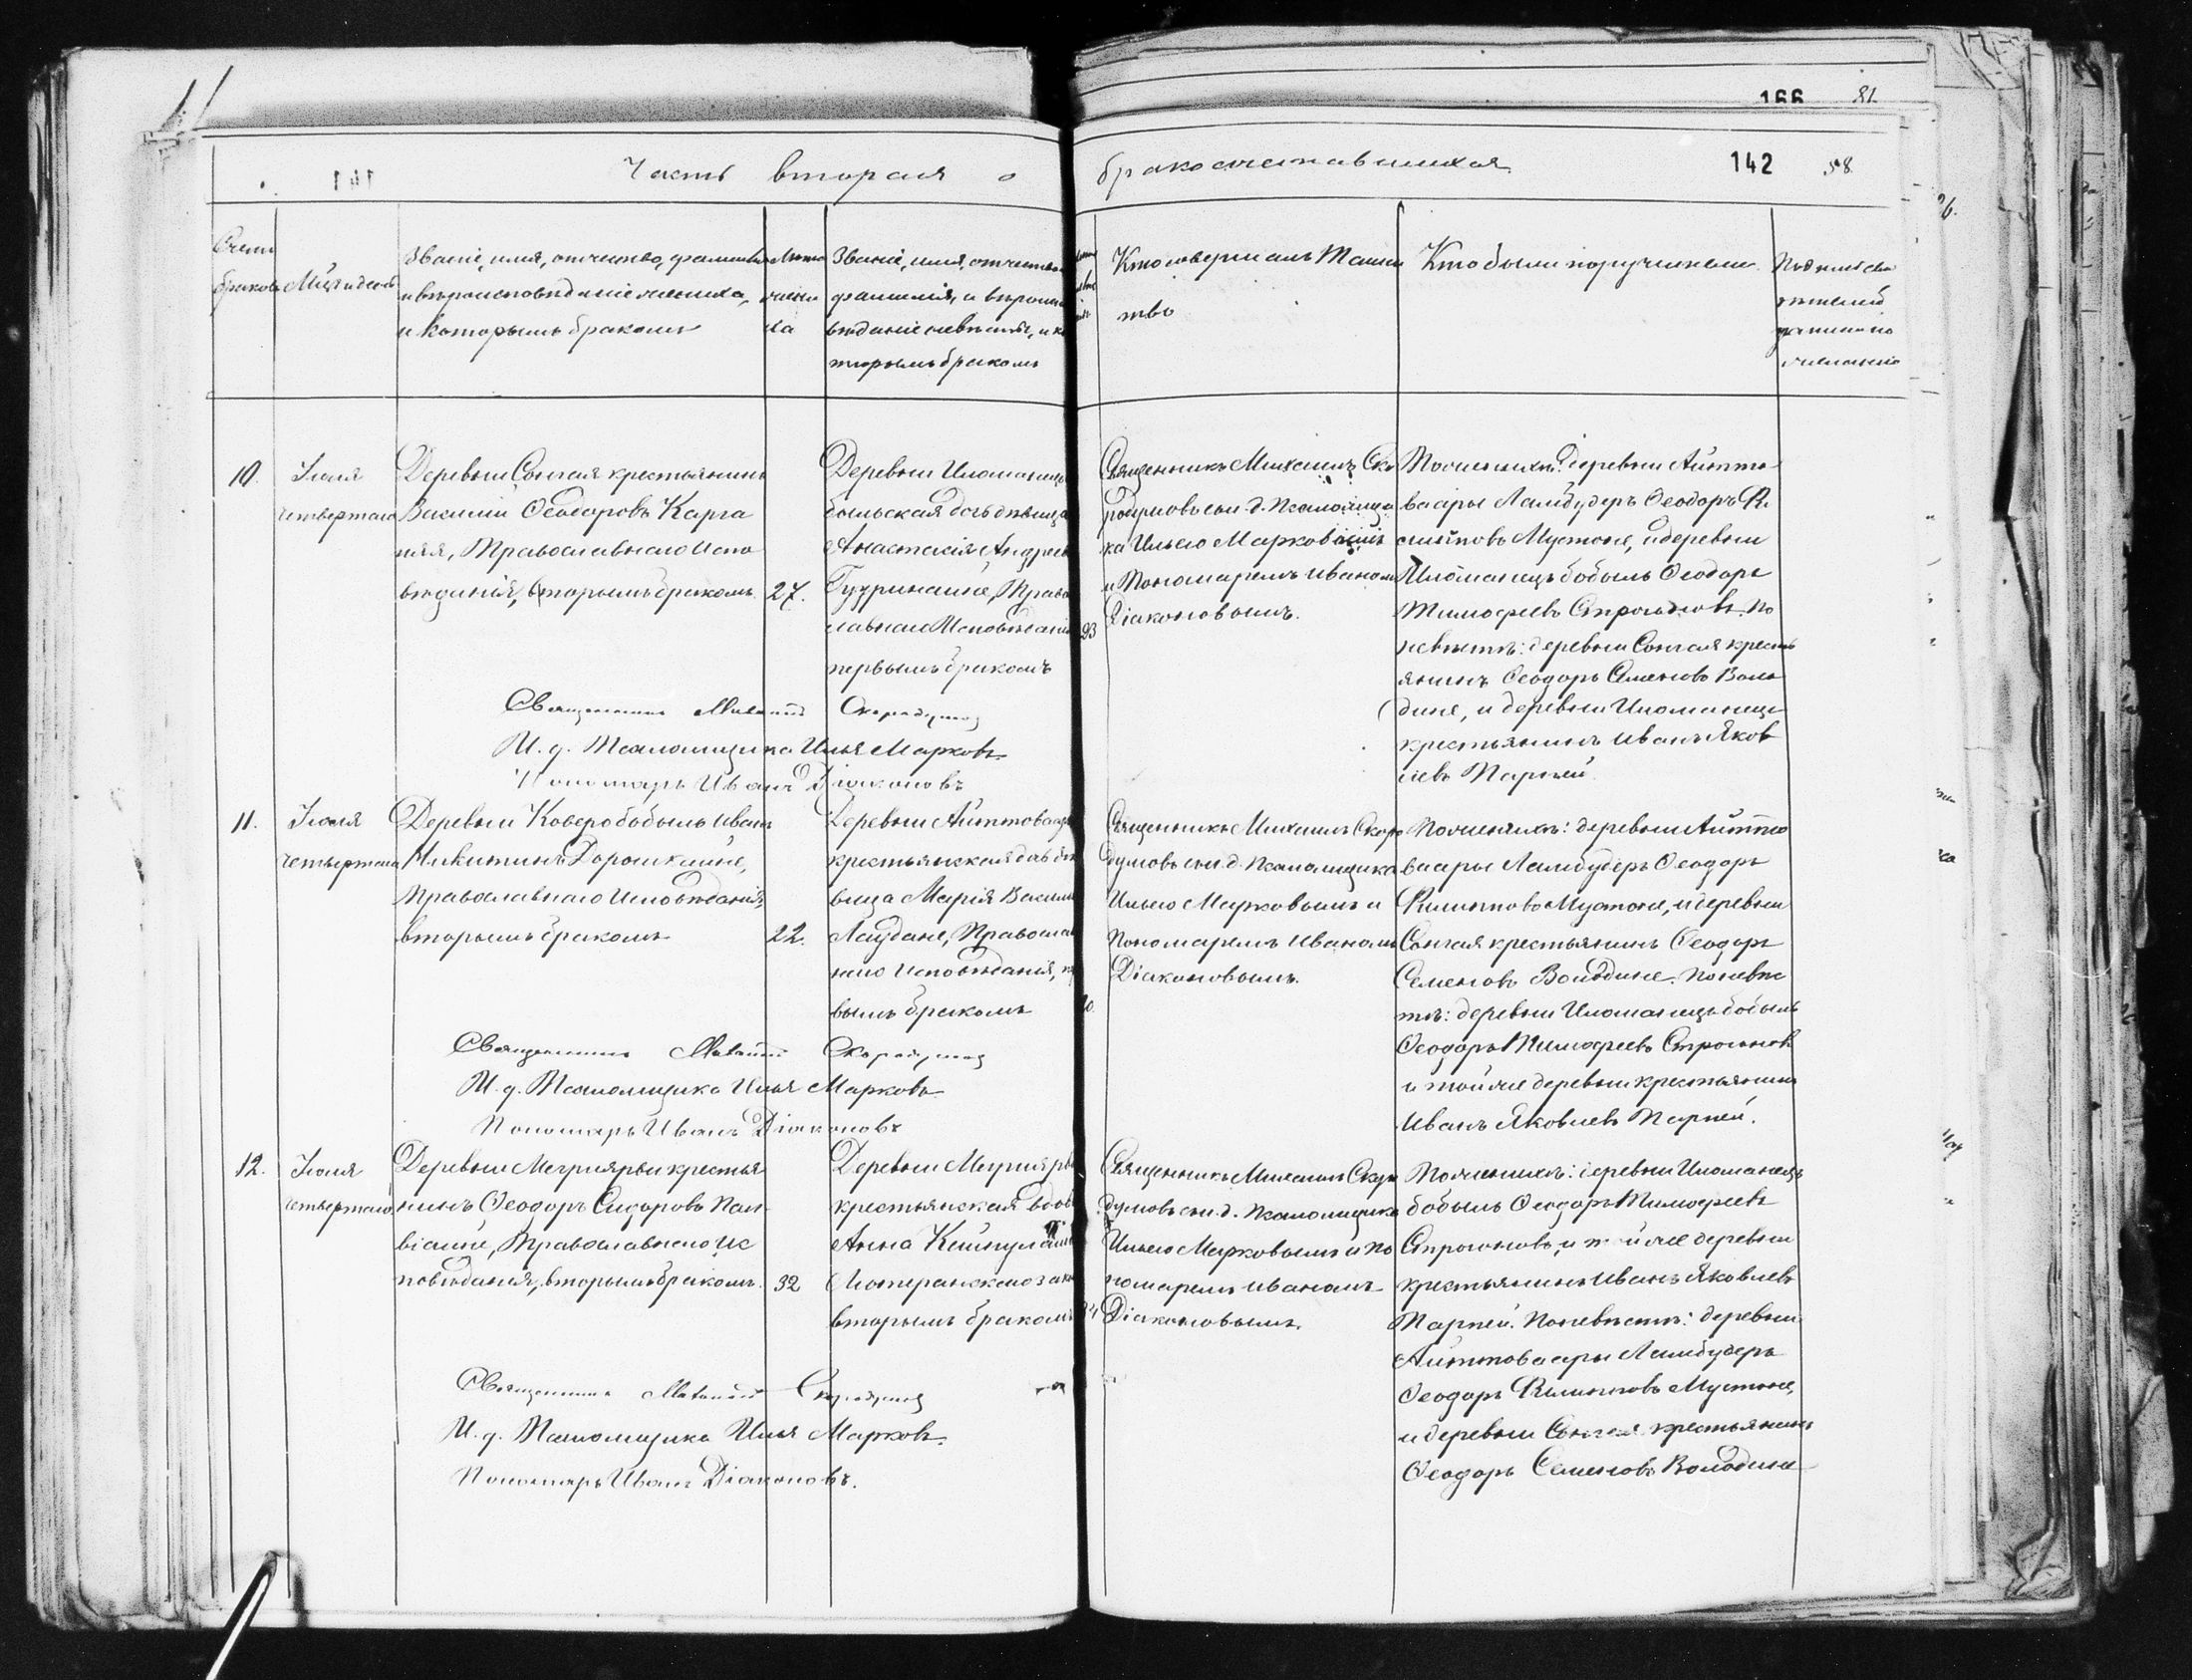 166 81.
Часть вторая о бракосочетавшихся 142 58.
Счетъ браковъ
Мѣс. и день
Званіе, имя, отчество, фамилія
и вѣроисповѣданіе жениха,
и которымъ бракомъ
Лѣта
жени
ха
Званіе, имя, отчество
фамилія, и вѣроиспо
вѣданіе невѣсты, и ко
торымъ бракомъ
Кто совершалъ Таин
ство
Кто были поручители
10.
Іюля
четвертаго
Деревни Сонгая крестьянинъ
Василій Ѳеодоровъ Карга
Православнаго испо
вѣданія, вторымъ бракомъ.
27.
Деревни Иломанецъ
быльская дочь дѣвица
Анастасія Андрее
Право
славнаго Исповѣданія
первымъ бракомъ
23
Священникъ Михаилъ Ско
родумовъ съ и. д. псаломщи
ка Ильею Марковымъ
и Пономаремъ Иваномъ
Діаконовымъ.
По женихѣ: деревни Айтто
ваары Ламбудеръ Ѳеодоръ Фи
липповъ Мустоне, и деревни
Иломанецъ бобыль Ѳеодоръ
Тимофеевъ Строгоновъ. По
невѣстѣ: деревни Сонгая кресть
янинъ Ѳеодоръ Семеновъ Воло
дине, и деревни Иломанецъ
крестьянинъ Иванъ Яков
левъ Парней.
Священникъ Михаилъ Скородумовъ
И. д. Псаломщика Илья Марковъ.
Пономарь Иванъ Діаконовъ
11.
Іюля
четвертаго
Деревни Коверо бобыль Иванъ
Никитинъ Дорошкайне,
Православнаго Исповѣданія,
вторымъ бракомъ
22.
Деревни Айттоваары
крестьянская дочь дѣ
вица Марія Васил
Лаудане, Правосла
наго Исповѣданія, пер
вымъ бракомъ
Священникъ Михаилъ Скоро
думовъ съ и. д. псаломщика
Ильею Марковымъ и
Пономаремъ Иваномъ
Діаконовымъ.
По женихѣ: деревни Айтто
ваары Ламбудеръ Ѳеодоръ
Филипповъ Мустоне, и деревни
Сонгая крестьянинъ Ѳеодоръ
Семеновъ Володине. По невѣс
тѣ: деревни Иломанецъ бобыль
Ѳеодоръ Тимофеевъ Строгоновъ
и той же деревни крестьянинъ
Иванъ Яковлевъ Парней.
Священникъ Михаилъ Скородумовъ
И. д. Псаломщика Илья Марковъ
Пономарь Иванъ Діаконовъ
12.
Іюля
четвертаго
Деревни Мегриярви крестья
нинъ Ѳеодоръ Сидоровъ Пал
віайне, Православнаго Ис
повѣданія, вторымъ бракомъ.
32
Деревни Мегриярви
крестьянская вдова
Анна
Лютеранскаго зако
вторымъ бракомъ
Священникъ Михаилъ Скоро
думовъ съ и. д. псаломщика
Ильею Марковымъ и по
номаремъ Иваномъ
Діаконовымъ.
По женихѣ: деревни Иломанецъ
бобыль Ѳеодоръ Тимофеевъ
Строгоновъ, и той же деревни
крестьянинъ Иванъ Яковлевъ
Парней. По невѣстѣ: деревни
Айттоваары Ламбудеръ
Ѳеодоръ Филипповъ Мустоне,
и деревни Сонгая крестьянинъ
Ѳеодоръ Семеновъ Володине
Священникъ Михаилъ Скородумовъ
И. д. Псаломщика Илья Марковъ.
Пономарь Иванъ Діаконовъ.